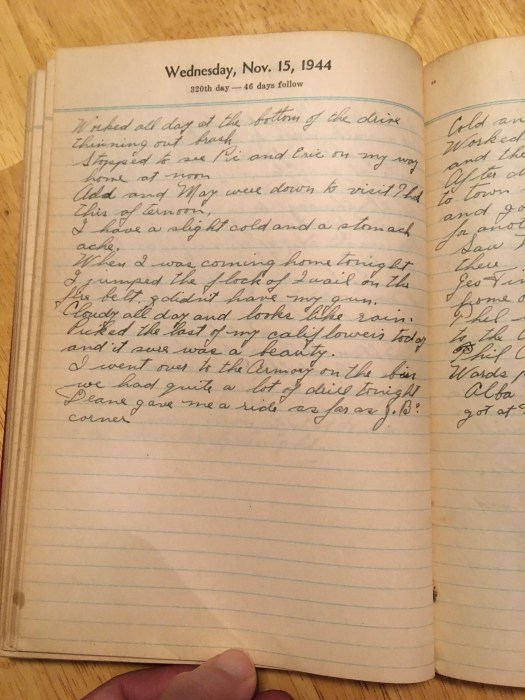 Wednesday, Nov. 15, 1944
320th day — 46 days follow
Worked all day at the bottom of the drive
thinning out brush
Stopped to see Pi and Eric on my way
home at noon
Add and May were down to visit Phil
this afternoon.
I have a slight cold and a stomach
ache.
When I was coming home tonight
I jumped the flock of Quail on the
fire belt. I didn't have my gun.
Cloudy all day and looks like rain.
Picked the last of my califlowers today
and it sure was a beauty.
I went over to the Armory on the bus
we had quite a lot of drill tonight
Deane gave me a ride as far as J.B's
corner
Cold an
Worked
and the
After d
to town
and go
for anot
Saw
there
Geo
from
Phil
to the
Phil
Words
Alba
got at